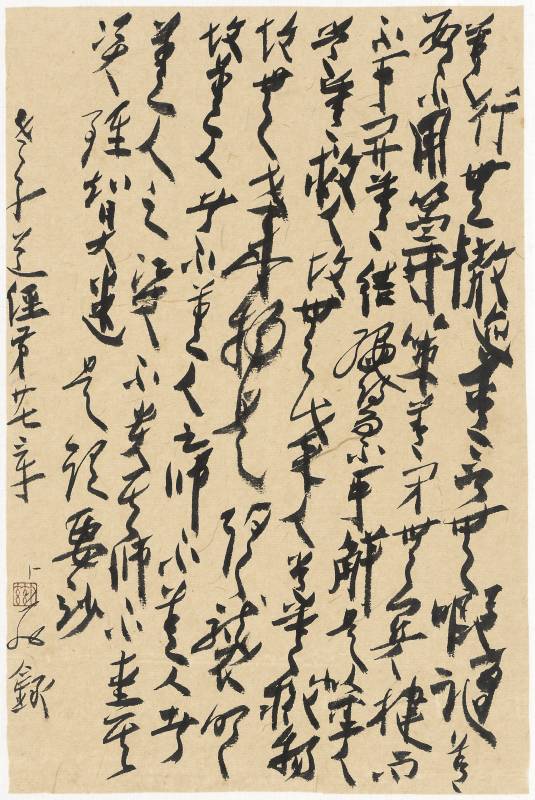 善行無轍迹善言無瑕謫善
數不用籌策善閉無關楗而
不可開善結繩約而不可解是以聖人
常善救人故無棄人常善救物
故無棄物是謂襲明
故善人者不善人之師不善人者
善人之資不貴其師不愛其
資雖智大迷是謂要妙
老子道經第廿七章 錄